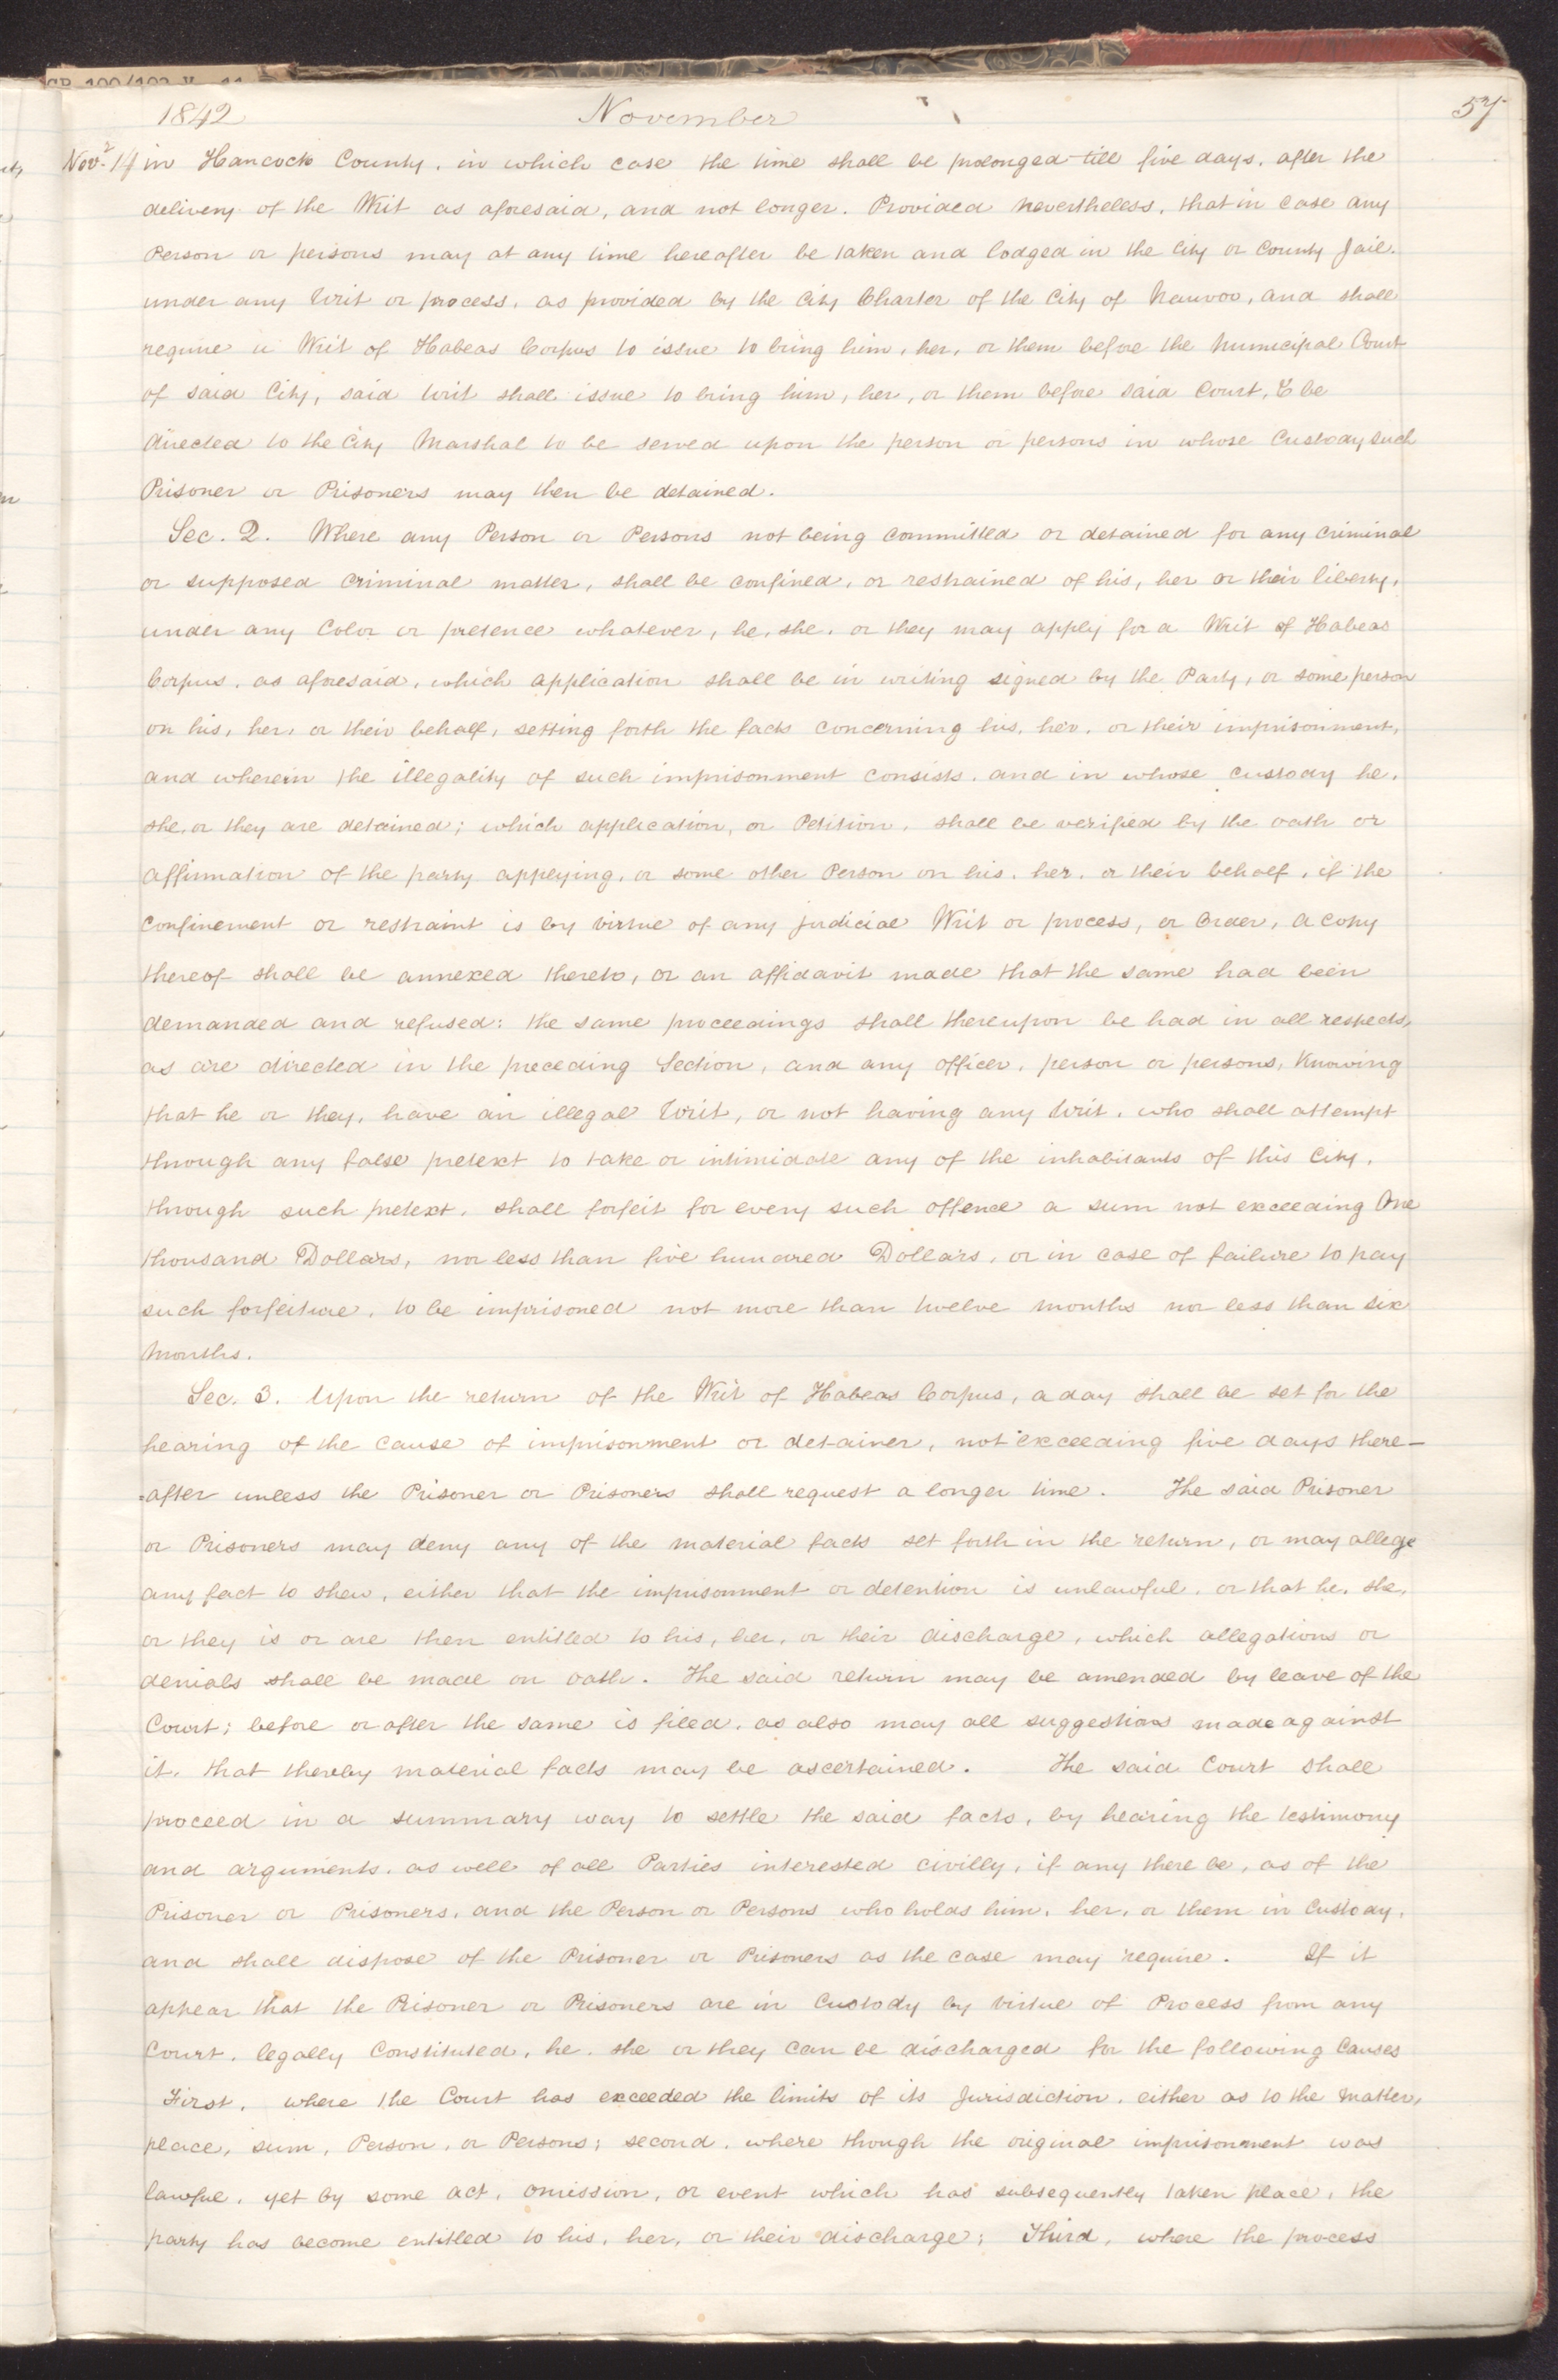 1842 November 57
Nov.r 14 in Hancock County, in which case the time shall be prolonged till five days, after the
delivery of the Writ as aforesaid, and not longer. Provided nevertheless, that in case any
Person or persons may at any time hereafter be taken and lodged in the City or County Jail.
under any Writ or process, as provided by the City Charter of the City of Nauvoo, and shall
require a Writ of Habeas Corpus to issue to bring him, her, or them before the Municipal Court
of said City, said Writ shall issue to bring him, her, or them before said Court, & be
directed to the City Marshal to be served upon the person or persons in whose Custody such
Prisoner or Prisoners may then be detained.
Sec. 2. Where any Person or Persons not being committed or detained for any criminal
or supposed criminal matter, shall be confined, or restrained of his, her or their liberty,
under any Color or pretence whatever, he, she, or they may apply for a Writ of Habeas
Corpus, as aforesaid, which application shall be in writing signed by the Party, or some person
on his, her, or their behalf, setting forth the facts concerning his, her, or their imprisonment,
and wherein the illegality of such imprisonment consists, and in whose custody he,
she, or they are detained; which application, or Petition, shall be verified by the oath or
affirmation of the party applying, or some other Person on his, her, or their behalf, if the
confinement or restraint is by virtue of any judicial Writ or process, or Order, a copy
thereof shall be annexed thereto, or an affidavit made that the same had been
demanded and refused: the same proceedings shall thereupon be had in all respects,
as are directed in the preceding Section, and any officer, person or persons, Knowing
that he or they, have an illegal Writ, or not having any Writ, who shall attempt
through any false pretext to take or intimidate any of the inhabitants of this City,
through such pretext, shall forfeit for every such offence a sum not exceeding One
thousand Dollars, nor less than five hundred Dollars, or in case of failure to pay
such forfeiture, to be imprisoned not more than twelve months nor less than six
Months.
Sec. 3. Upon the return of the Writ of Habeas Corpus, a day shall be set for the
hearing of the cause of imprisonment or detainer, not exceeding five days there-
=after unless the Prisoner or Prisoners shall request a longer time. The said Prisoner
or Prisoners may deny any of the material facts set forth in the return, or may allege
any fact to shew, either that the imprisonment or detention is unlawful, or that he, she,
or they is or are then entitled to his, her, or their discharge, which allegations or
denials shall be made on oath. The said return may be amended by leave of the
Court; before or after the same is filed, as also may all suggestions made against
it, that thereby material facts may be ascertained. The said Court shall
proceed in a summary way to settle the said facts, by hearing the testimony
and arguments, as well of all Parties interested civilly, if any there be, as of the
Prisoner or Prisoners, and the Person or Persons who holds him, her, or them in Custody,
and shall dispose of the Prisoner or Prisoners as the case may require. If it
appear that the Prisoner or Prisoners are in Custody by virtue of Process from any
Court, legally Constituted, he, she or they can be discharged for the following Causes
First, where the Court has exceeded the limits of its Jurisdiction, either as to the matter,
place, sum, Person, or Persons; second, where though the original imprisonment was
lawful, yet by some act, omission, or event which has subsequently taken place, the
party has become entitled to his, her, or their discharge; Third, where the process